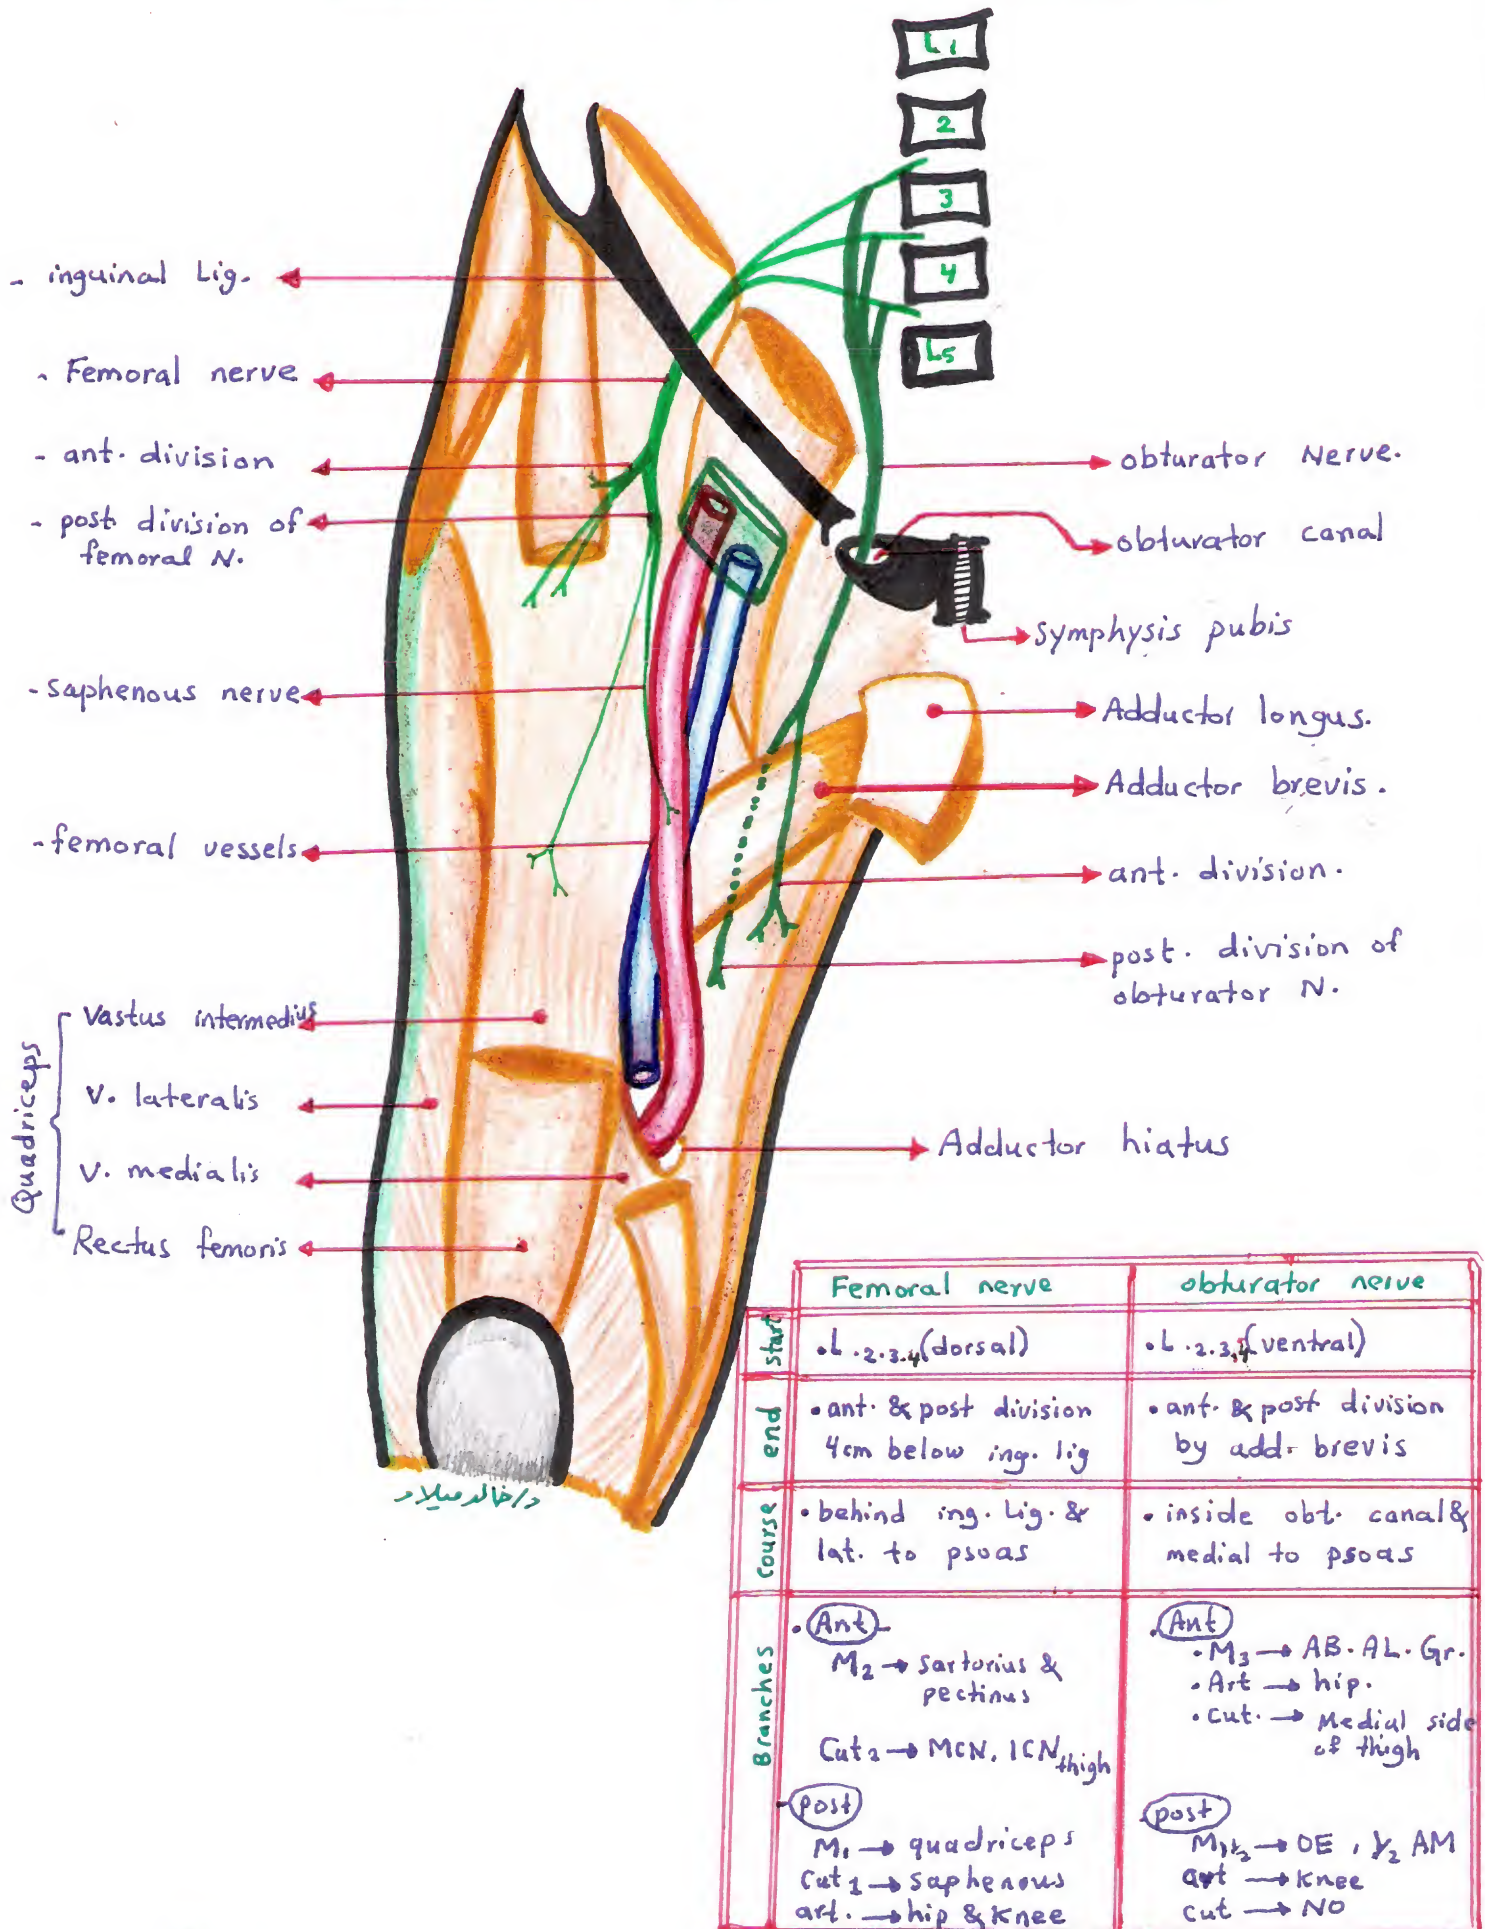 L1
2
3
4
L5
- inguinal Lig.
- Femoral nerve
- ant. division
- post division of
femoral N.
- saphenous nerve
- femoral vessels
Quadriceps
Vastus intermedius
V. lateralis
V. medialis
Rectus femoris
obturator Nerve.
obturator canal
Symphysis pubis
Adductor longus.
Adductor brevis.
ant. division.
post. division of
obturator N.
Adductor hiatus
د/خالد ميلاد
Femoral nerve
obturator nerve
start
• L.2.3.4 (dorsal)
• L.2.3,4 (ventral)
end
• ant. & post division
4cm below ing. lig
• ant. & post division
by add. brevis
course
• behind ing. Lig. &
lat. to psoas
• inside obt. canal &
medial to psoas
Branches
• Ant
M2 → sartorius &
pectinus
Cut2 → MCN, ICN thigh
• post
M1 → quadriceps
Cut1 → saphenous
art. → hip & knee
• Ant
• M3 → AB. AL. Gr.
• Art → hip.
• Cut. → Medial side
of thigh
• post
M1½ → OE, ½ AM
art → knee
cut → NO